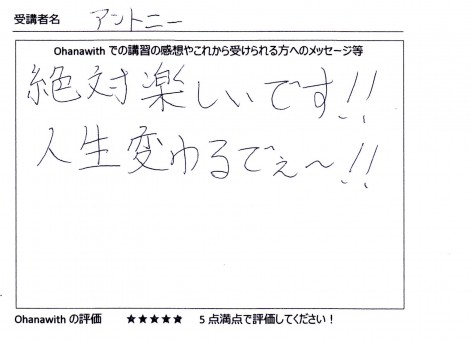 受講者名 アントニー
Ohanawith での講習の感想やこれから受けられる方へのメッセージ等
絶対楽しいです!!
人生変わるでぇ〜!!
Ohanawith の評価 ★★★★★ 5点満点で評価してください！